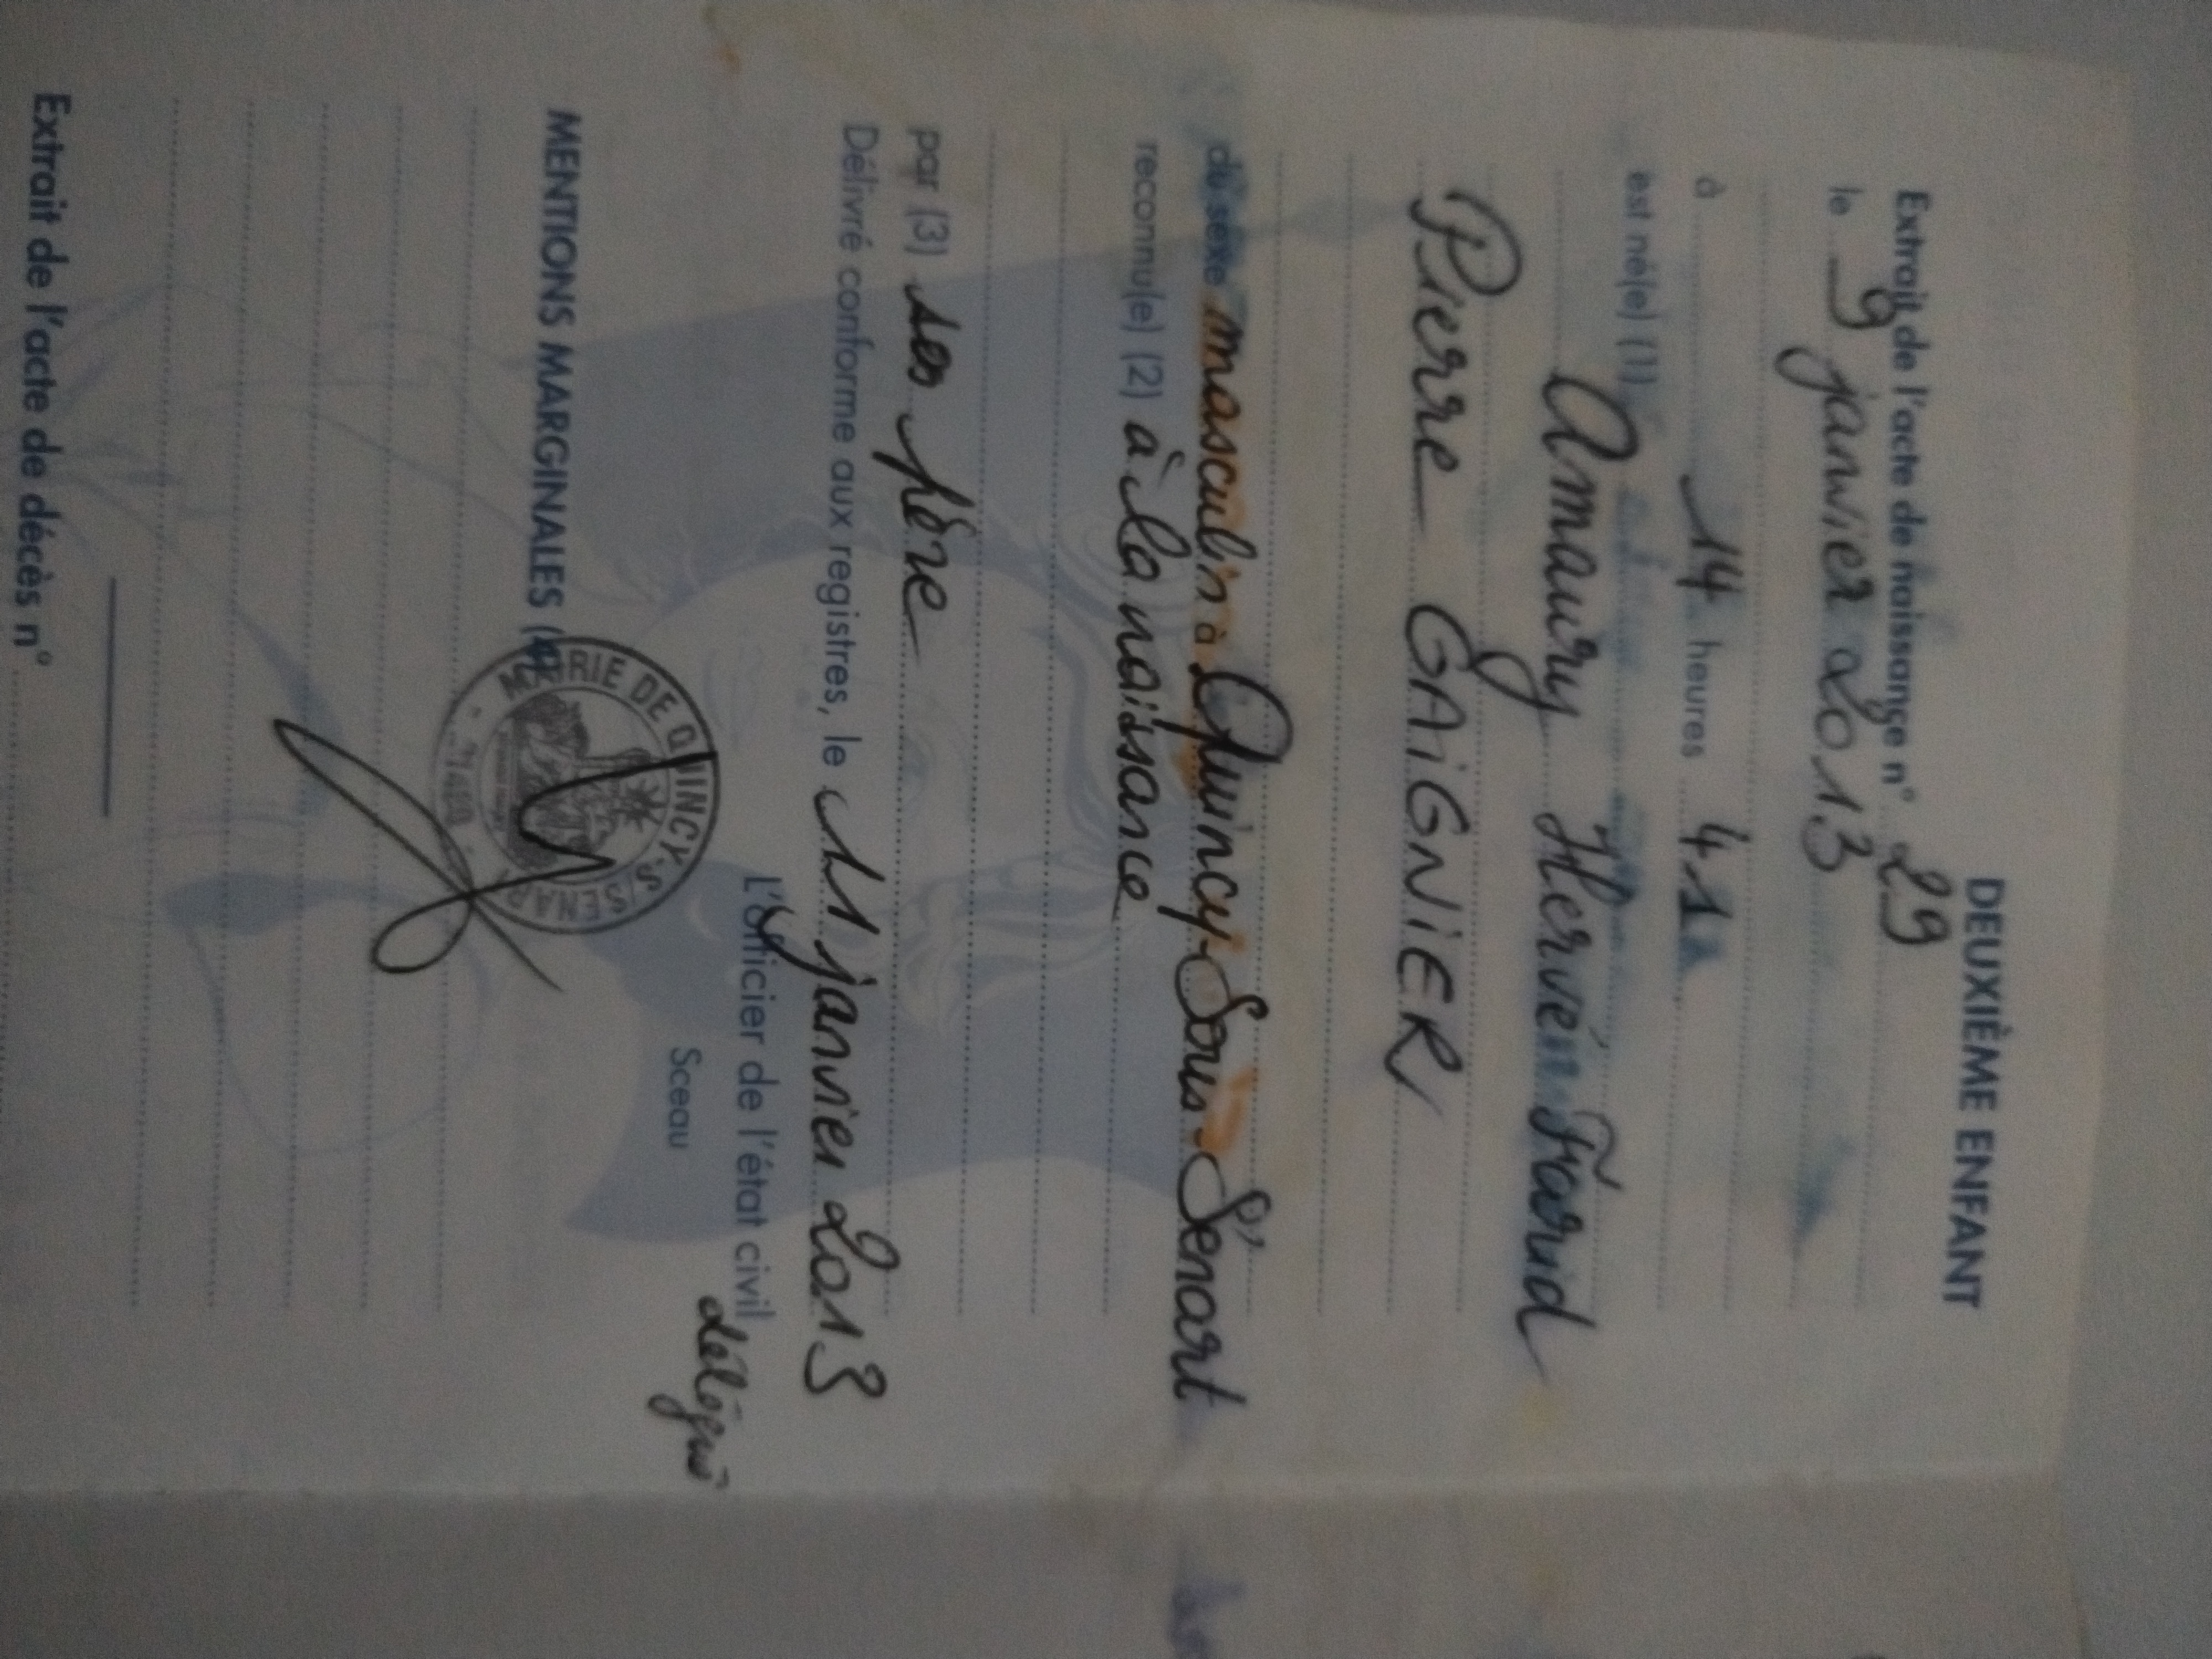 DEUXIÈME ENFANT
Extrait de l'acte de naissance n° 29
le 9 janvier 2013
à 14 heures 41
est né(e) (1)
Amaury Hervé Farid
Pierre GAIGNIER
du sexe masculin à Quincy-Sous-Sénart
reconnu(e) (2) à la naissance
par (3) ses père
Délivré conforme aux registres, le 11 janvier 2013
L'officier de l'état civil
délégué
Sceau
MAIRIE DE QUINCY-S/SENART
MENTIONS MARGINALES (4)
Extrait de l'acte de décès n°